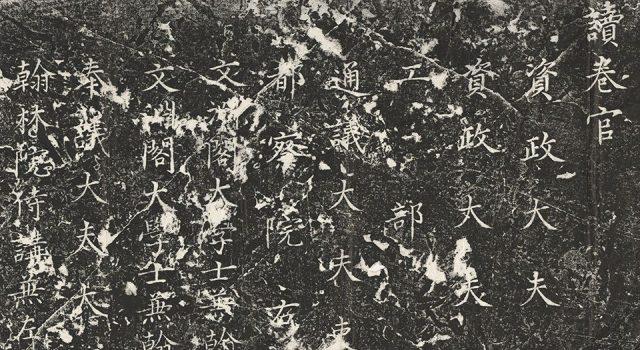 讀卷官
資政大夫
資政大夫
工部
通議大夫
都察院右
文淵閣大學士兼翰
文淵閣大學士兼翰
奉議大夫太
翰林院侍講兼